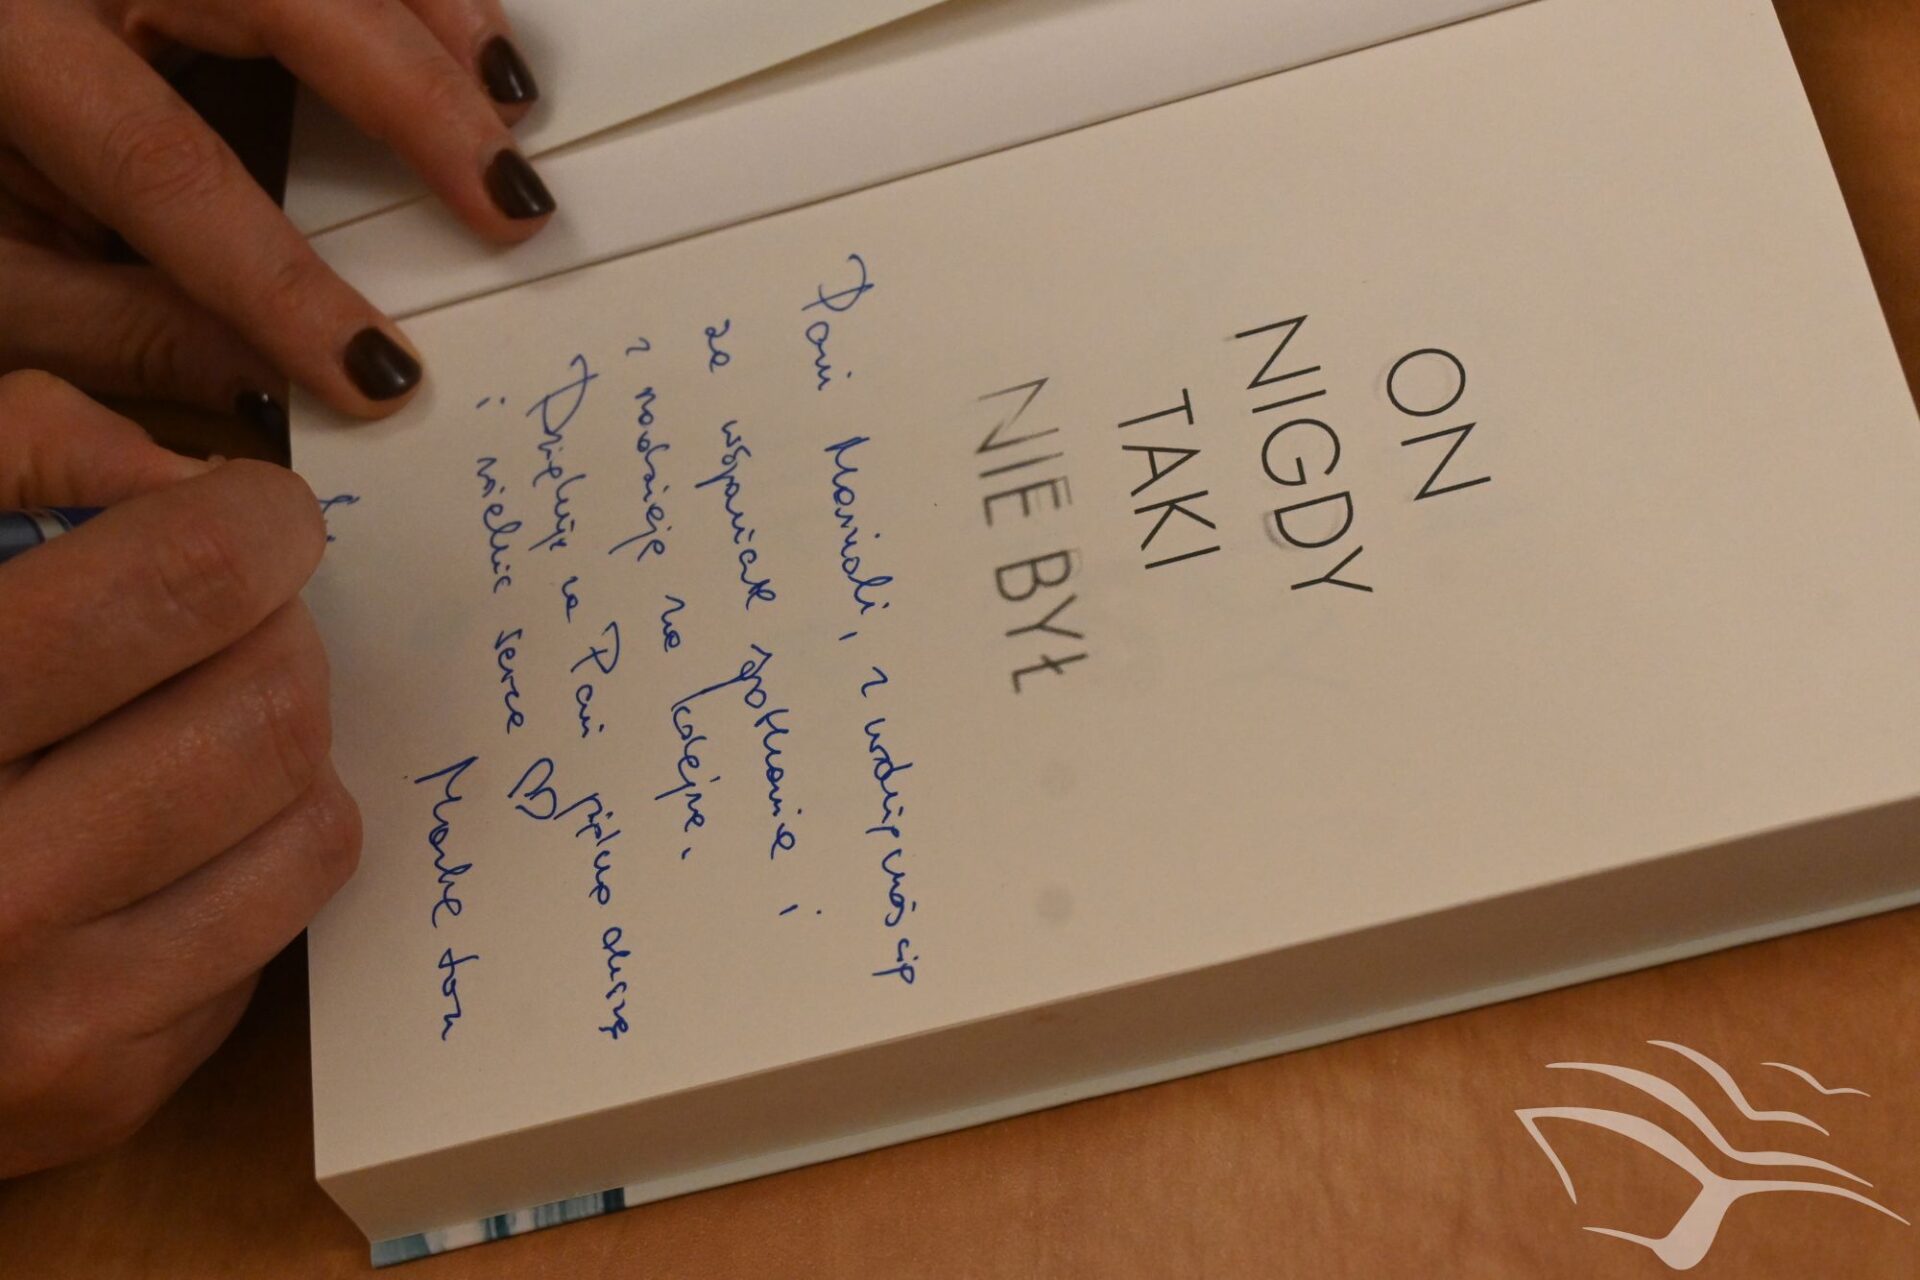 ON
NIGDY
TAKI
NIE BYŁ
Pani Marioli, z wdzięcznością
za wspaniałe spotkanie i
z nadzieję na kolejne.
Dziękuję za Pani piękną duszę
i wielkie serce